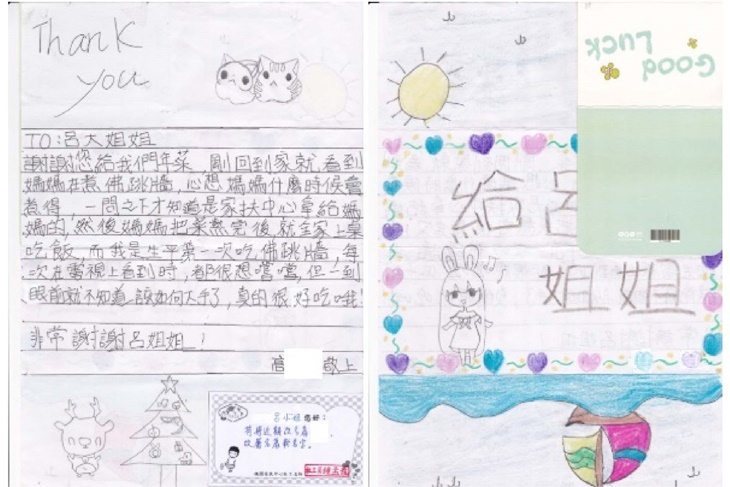 Thank
you
TO:呂大姐姐
謝謝您給我們年菜,剛回到家就看到
媽媽在煮佛跳牆,心想媽媽什麼時候會
煮得,一問之下才知道是家扶中心拿給媽
媽的,然後媽媽把菜煮完後就全家上桌
吃飯,而我是生平第一次吃佛跳牆,每
次在電視上看到時,都很想嚐嚐,但一到
眼前就不知道該如何大手了,真的很好吃哦!
非常謝謝呂姐姐!
高 敬上
呂小姐 您好:
GOOD
LUCK
給呂
姐姐